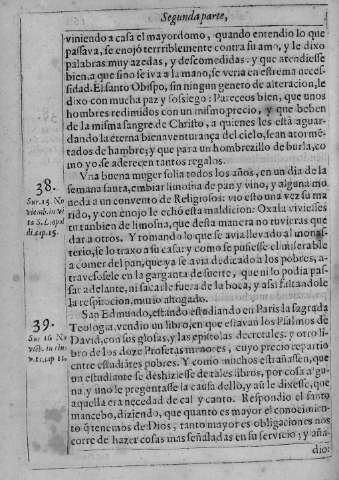 Segunda parte,
viniendo a casa el mayordomo, quando entendio lo que
passava, se enojò terrriblemente contra su amo, y le dixo
palabras muy azedas, y descomedidas. y que atendiesse
bien, a que sino se iva a la mano, se veria en estrema neces-
sidad. El santo Obispo, sin ningun genero de alteracion, le
dixo con mucha paz y sossiego: Pareceos bien, que unos
hombres redimidos con un mismo precio, y que beben
de la misma sangre de Christo, a quienes les està aguar-
dando la eterna bienaventurança del cielo, sean atormẽ-
tados de hambre; y que para un hombrezillo de burla, co-
mo yo se aderecen tantos regalos.
38.
Sur. 15. No
di. cap. 15.
Una buena muger solia todos los años, en un dia de la
semana santa, embiar limosna de pan y vino, y alguna mo
neda a un convento de Religiosos: vio esto una vez su ma
rido, y con enojo le echò esta maldicion: Oxala viviesses
tu tambien de limosna, que desta manera no tuvieras que
dar a otros. Y tomando lo que se avia llevado al monas-
terio, se lo traxo a su casa: y como se pusiesse el miserable
a comer del pan, que ya se avia dedicado a los pobres, a-
travessosele en la garganta de suerte, que ni lo podia pas-
sar adelante, ni sacarle fuera de la boca, y assi faltandole
la respiracion, murio ahogado.
39.
Sur 16 No
San Edmundo, estando estudiando en Paris la sagrada
Teologia, vendio un libro, en que estavan los Psalmos de
David, con sus glosas, y las epistolas decretales, y otro li-
bro de los doze Profetas menores, cuyo precio repartio
entre estudiãtes pobres. Y como muchos estrañassen, que
un estudiante se deshiziesse de tales libros, por cosa algu-
na, y uno le preguntasse la causa dello, y aũ le dixesse, que
aquella era necedad de cal y canto. Respondio el santo
mancebo, diziendo, que quanto es mayor el conocimien-
to q̃ tenemos de Dios, tanto mayor es obligaciones nos
corre de hazer cosas mas señaladas en su servicio; y aña-
dio: